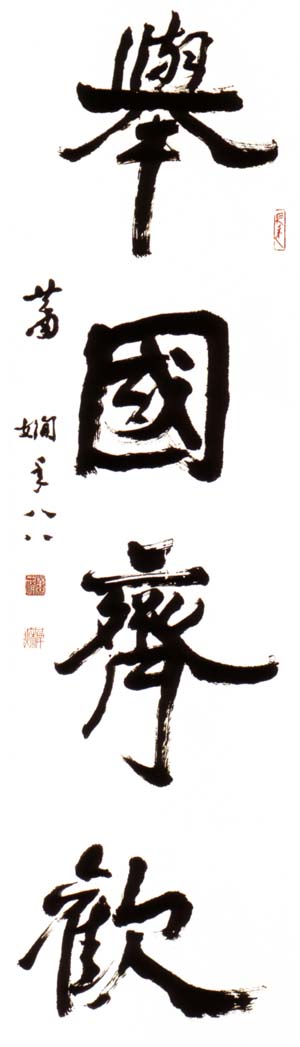 舉國齊歡
蕭嫻年八八